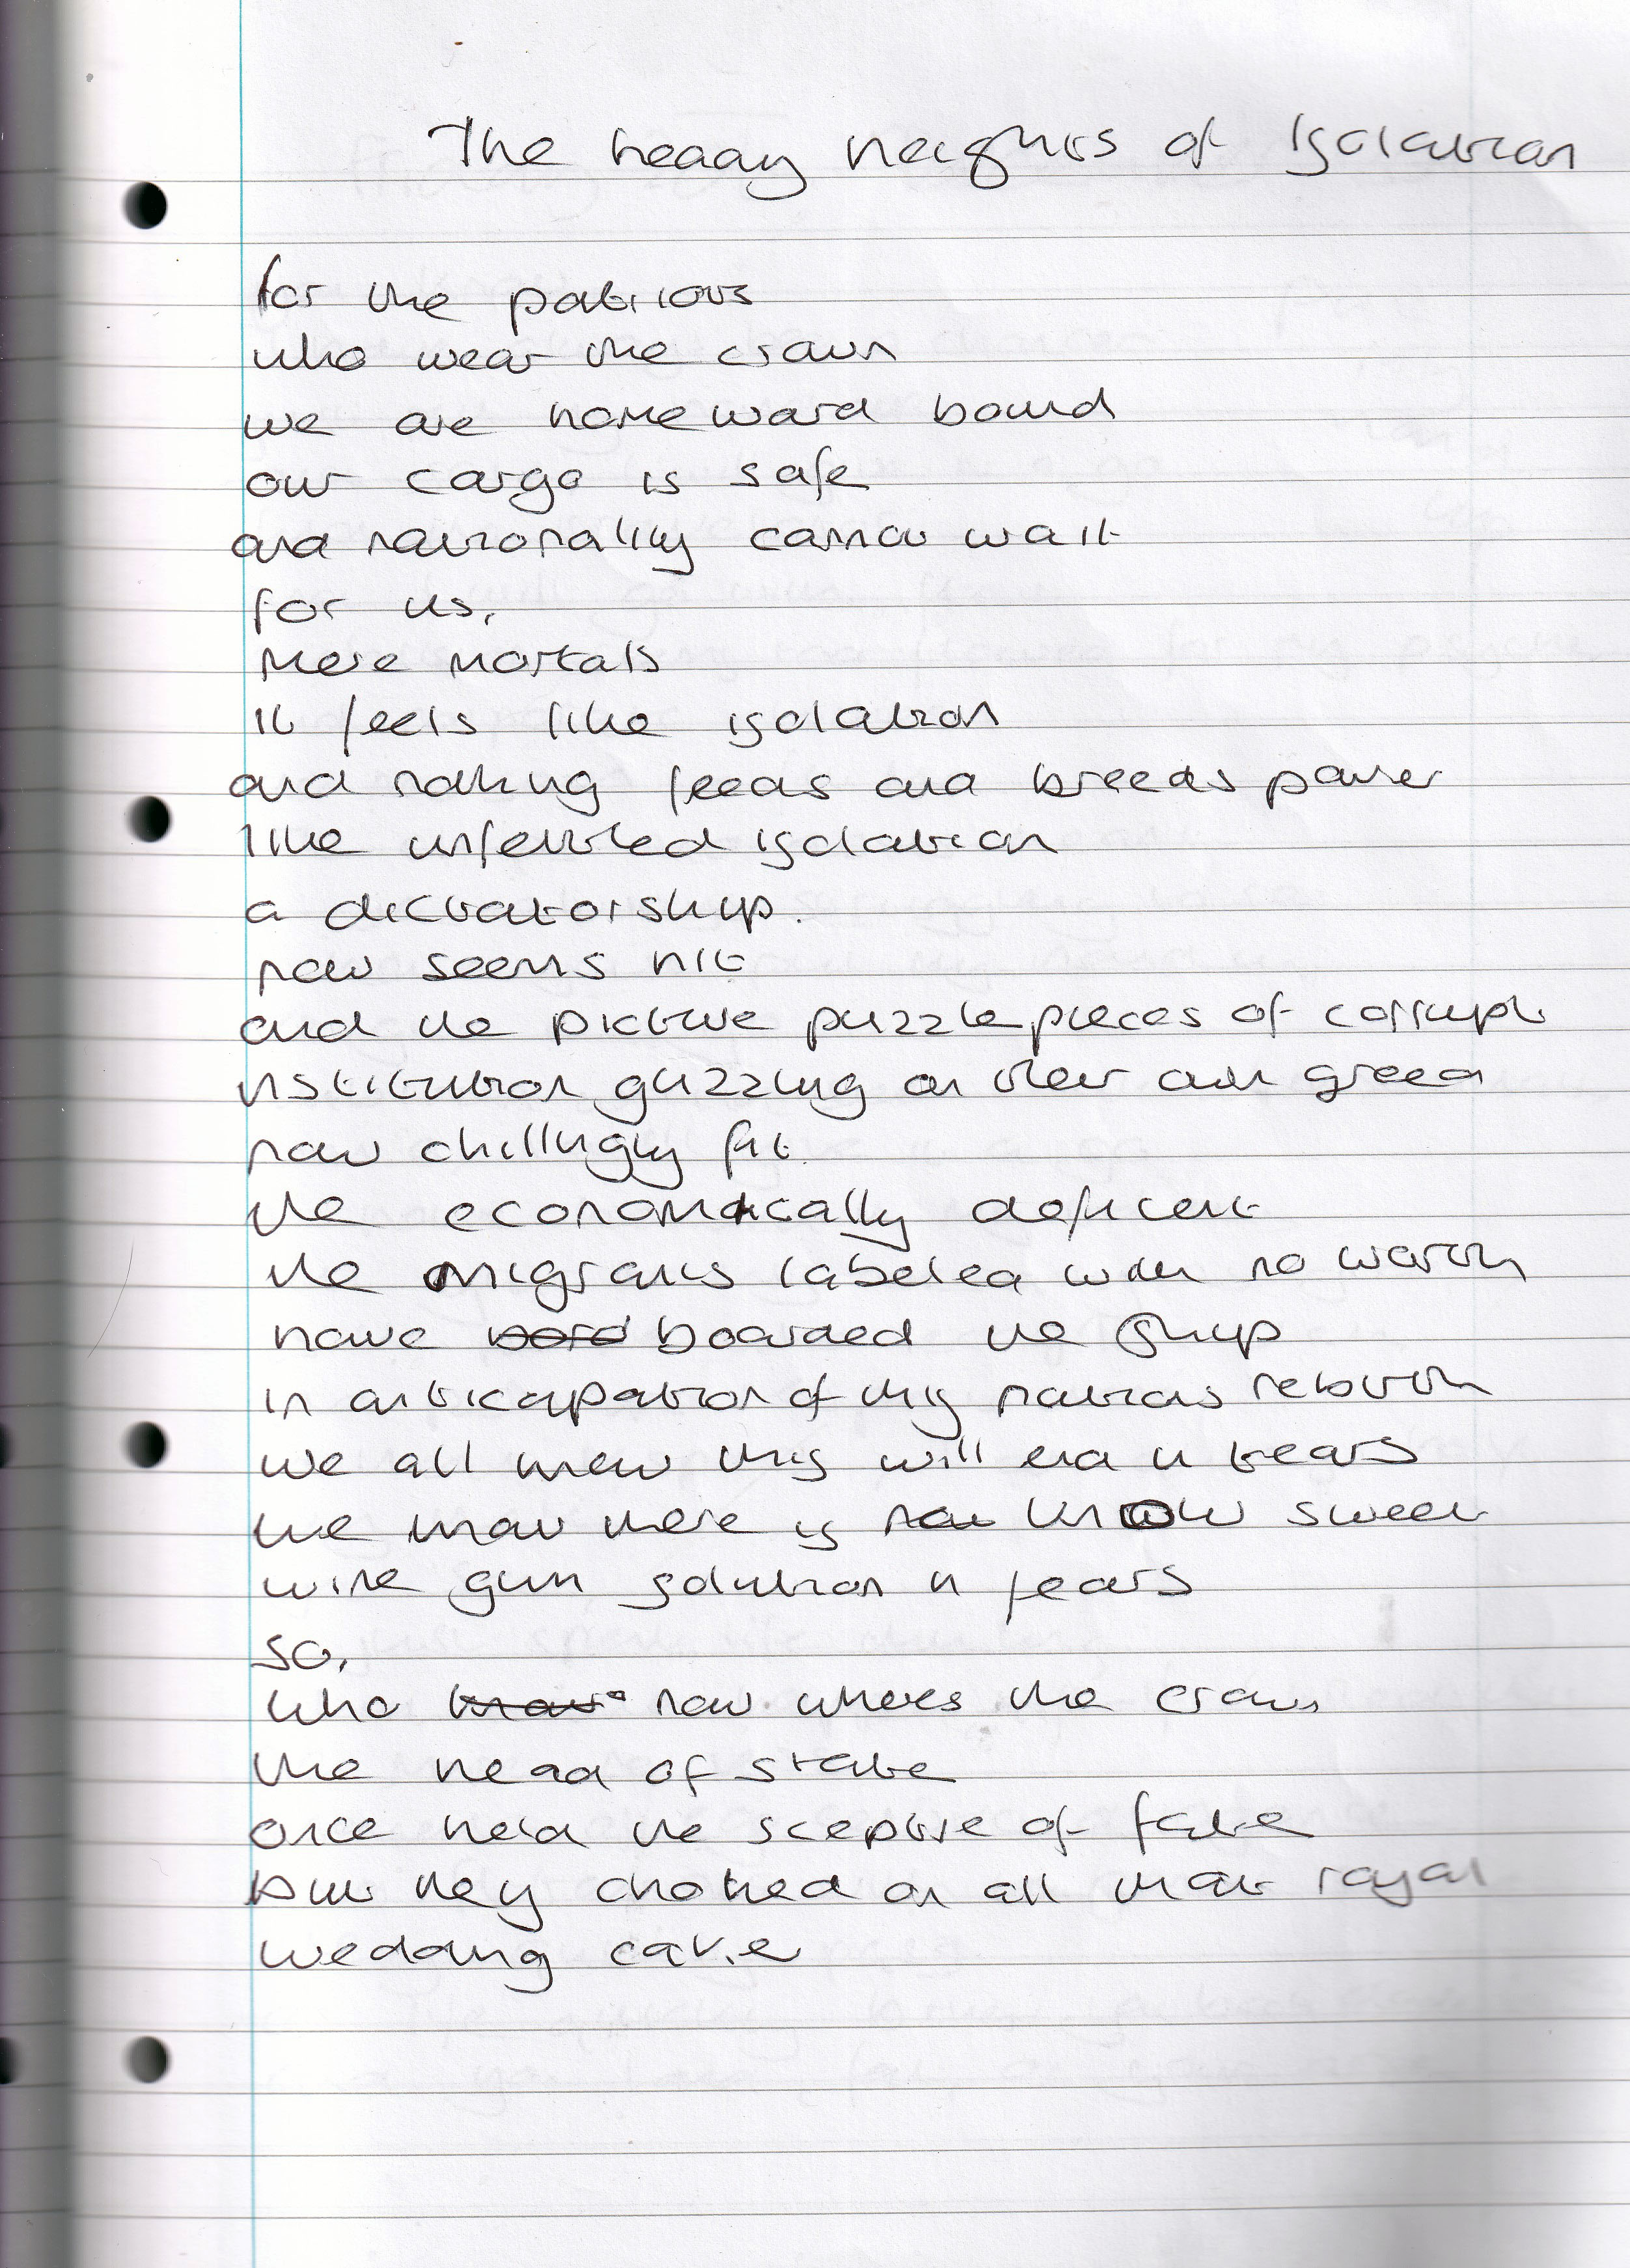 The heady heights of Isolation
for the patriots
who wear the crown
we are homeward bound
our cargo is safe
and nationality cannot wait
for us,
mere mortals
it feels like isolation
and nothing feeds and breeds power
like unfettered isolation
a dictatorship.
now seems hit
and the picture puzzle pieces of corrupt
institution guzzling on their own greed
now chillingly fit.
the economically deficent
the migrants labeled with no worth
have bord boarded the ship
in anticapation of this nations rebirth
we all knew this will end in tears
we know there is now know sweet
wine gum solution in fears
so,
who know now wheres the crown
the head of state
once held the sceptre of fate
but they choked on all that royal
wedding cake